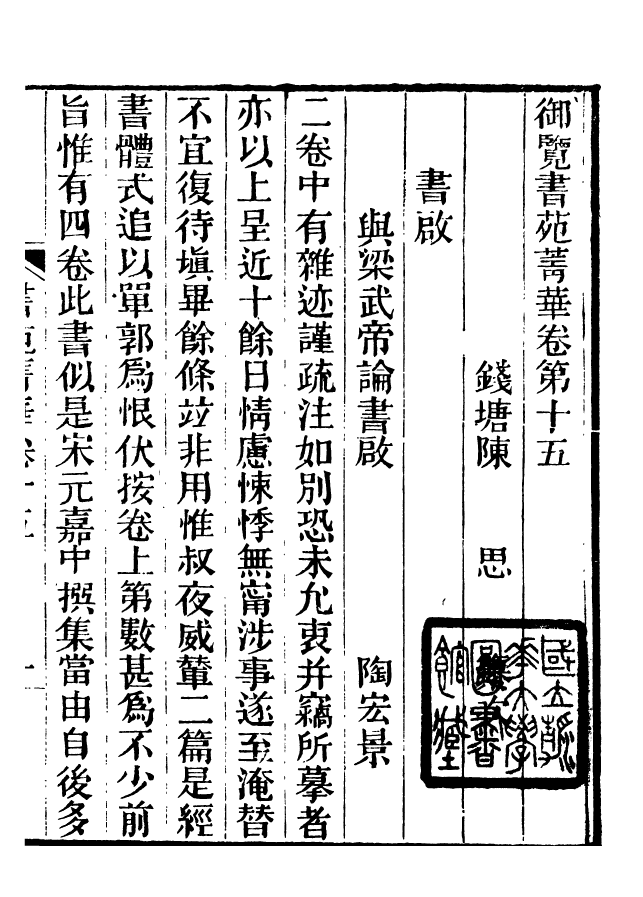 御覽書苑菁華卷第十五
錢塘陳 思
書啟
與梁武帝論書啟 陶宏景
二卷中有雜迹謹疏注如別恐未允衷并竊所摹者
亦以上呈近十餘日情慮悚悸無甯涉事遂至淹替
不宜復待塡畢餘條竝非用惟叔夜威輦二篇是經
書體式追以單郭爲恨伏按卷上第數甚爲不少前
旨惟有四卷此書似是宋元嘉中撰集當由自後多
書苑菁華卷十五 一
國立
大學
圖書
館藏